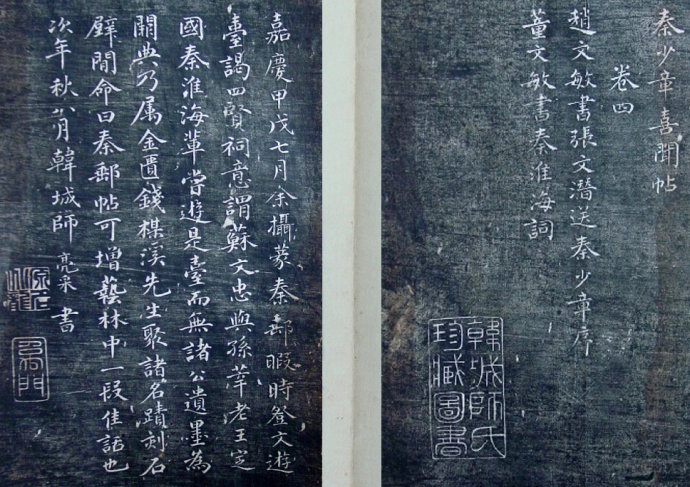 秦少章喜聞帖
卷四
趙文敏書張文潛送秦少章序
董文敏書秦淮海詞
韓城師氏
珍藏圖書
嘉慶甲戌七月余攝篆秦郵暇時登文遊
臺謁四賢祠意謂蘇文忠與孫莘老王定
國秦淮海輩嘗遊是臺而無諸公遺墨為
闕典乃属金匱錢楳溪先生聚諸名蹟刻石
壁間命曰秦郵帖可增藝林中一段佳話也
次年秋八月韓城師亮采書